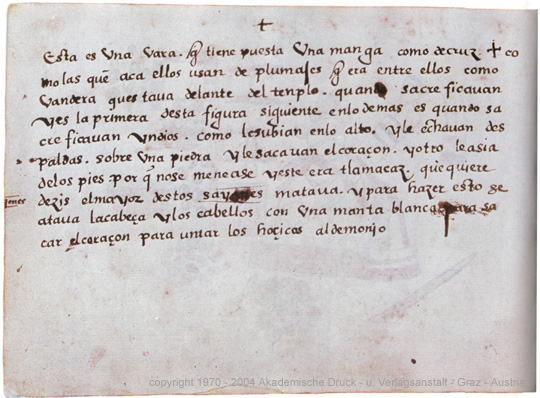 +
Esta es una vara. q̃ tiene puesta una manga como de cruz + co
mo las que aca ellos usan de plumajes q̃ era entre ellos como
vandera questaua delante del tenplo. quando sacreficauan
y es la primera desta figura siguiente enlo demas es quando sa
creficauan yndios. como le subian en lo alto. y le echauan des
paldas. sobre una piedra y le sacauan el coraçon. y otro le asia
de los pies por q̃ no se menease y este era tlamacaz que quiere
dezir el mayor destos sayones mataua. y para hazer esto se
ataua la cabeça y los cabellos con una manta blanca para sa
car el coraçon para untar los hoçicos al demonio
copyright 1970 - 2004 Akademische Druck - u. Verlagsanstalt - Graz - Austria